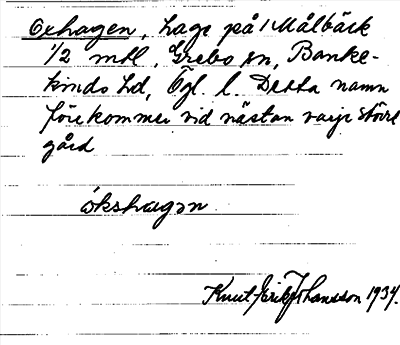 Oxhagen, hage på 1 Målbäck
1/2 mtl, Grebo sn, Banke-
kinds hd, Ögl. l. Detta namn
förekommer vid nästan varje större
gård
ókshagən
Knut Erik Johansson 1934.